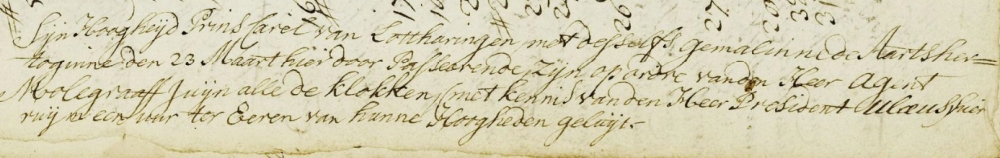 Sijn Hoogheijd Prins Carel van Lottharingen met desselfs gemalinne de Aartsher=
toginne den 23 Maart hier door Passeerende, zijn op ordre van den Heer Agent
Molegraaff Juijn alle de klokken, met kennis van den Heer President hier
ruijm een uur ter Eeren van hunne Hoogheden geluijt.